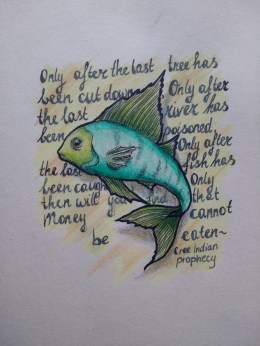 Only after the last tree has
been cut down Only after
the last river has
been poisoned
Only after
the last fish has
been caught Only
then will you find that
Money cannot
be eaten~
Cree Indian
prophecy